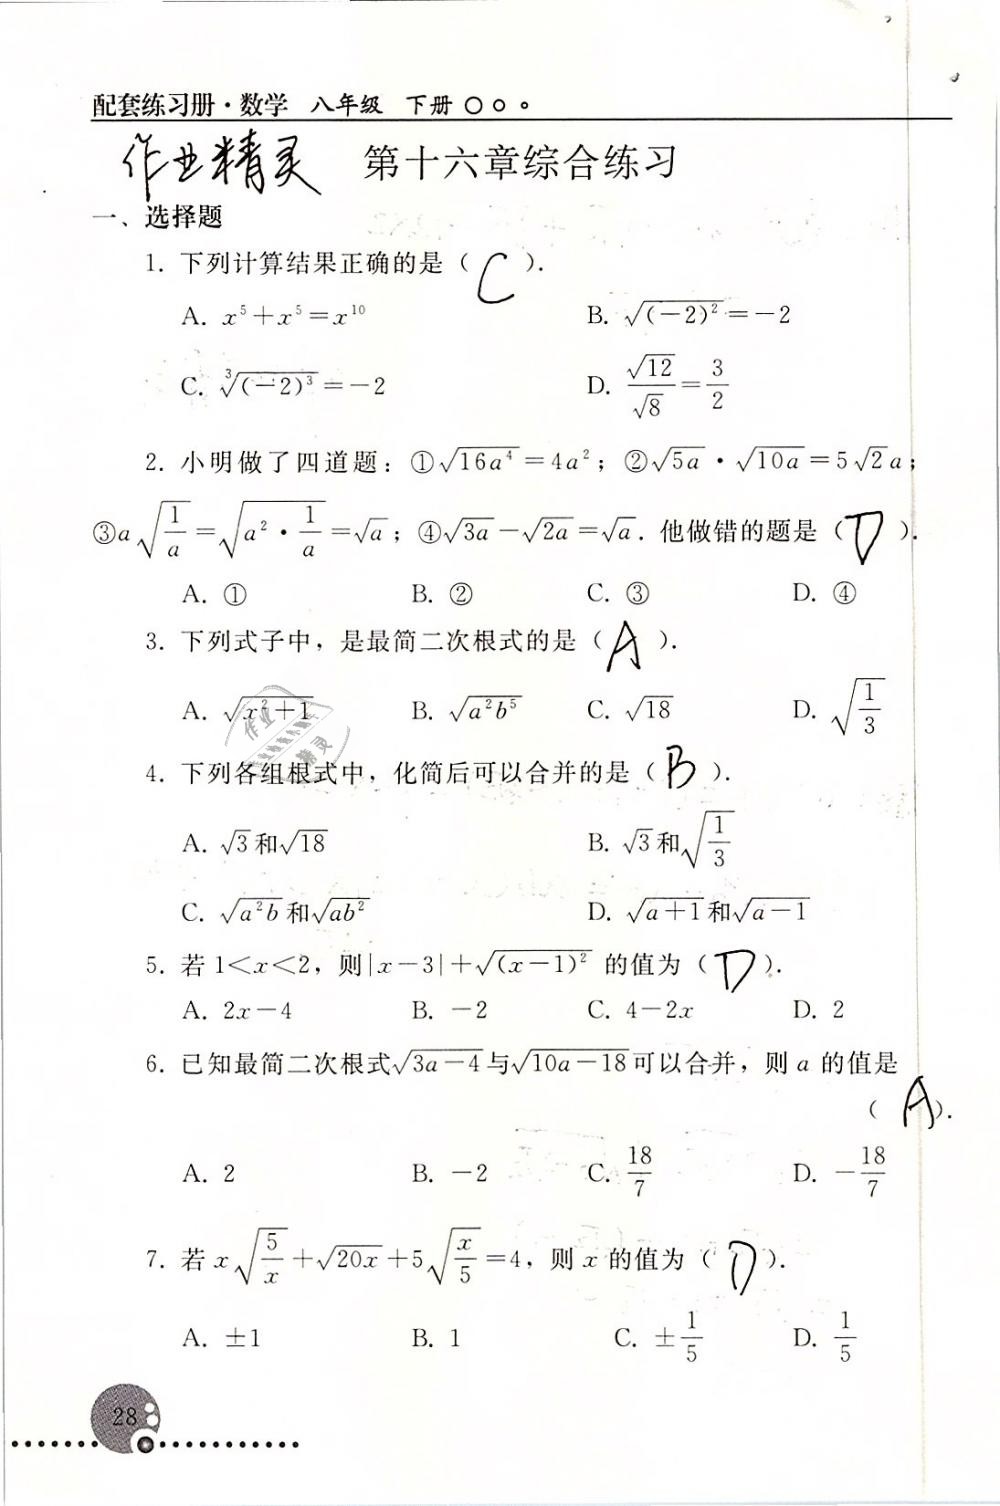 配套练习册·数学 八年级 下册
作业精灵 第十六章综合练习
一、选择题
1. 下列计算结果正确的是( C ).
A. x⁵+x⁵=x¹⁰ B. √(-2)²=-2
C. ³√(-2)³=-2 D. √12/√8=3/2
2. 小明做了四道题:①√16a⁴=4a²;②√5a·√10a=5√2a;
③a√(1/a)=√(a²·1/a)=√a;④√3a-√2a=√a. 他做错的题是( D ).
A. ① B. ② C. ③ D. ④
3. 下列式子中,是最简二次根式的是( A ).
A. √(x²+1) B. √(a²b⁵) C. √18 D. √(1/3)
4. 下列各组根式中,化简后可以合并的是( B ).
A. √3和√18 B. √3和√(1/3)
C. √(a²b)和√(ab²) D. √(a+1)和√(a-1)
5. 若1<x<2,则|x-3|+√(x-1)² 的值为( D ).
A. 2x-4 B. -2 C. 4-2x D. 2
6. 已知最简二次根式√(3a-4)与√(10a-18)可以合并,则 a 的值是
( A ).
A. 2 B. -2 C. 18/7 D. -18/7
7. 若 x√(5/x)+√20x+5√(x/5)=4,则 x 的值为( D ).
A. ±1 B. 1 C. ±1/5 D. 1/5
28
作业
精灵